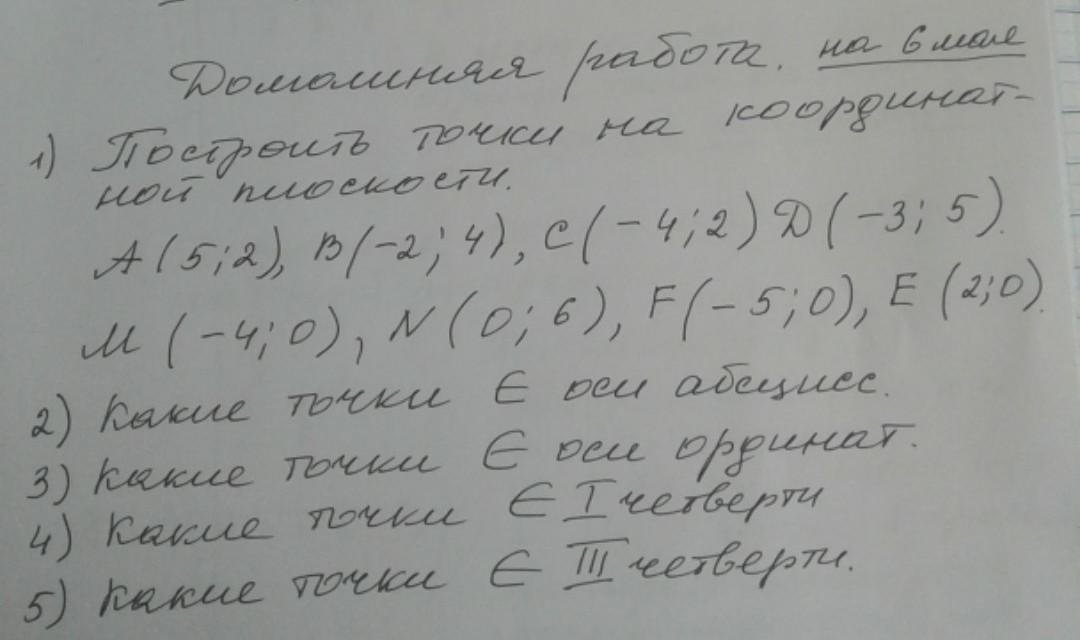 Домашняя работа. на 6 мая
1) Построить точки на координат-
ной плоскости.
A(5;2), B(-2;4), C(-4;2) D(-3;5).
M(-4;0), N(0;6), F(-5;0), E(2;0).
2) Какие точки ∈ оси абсцисс.
3) Какие точки ∈ оси ординат.
4) Какие точки ∈ I четверти
5) Какие точки ∈ III четверти.